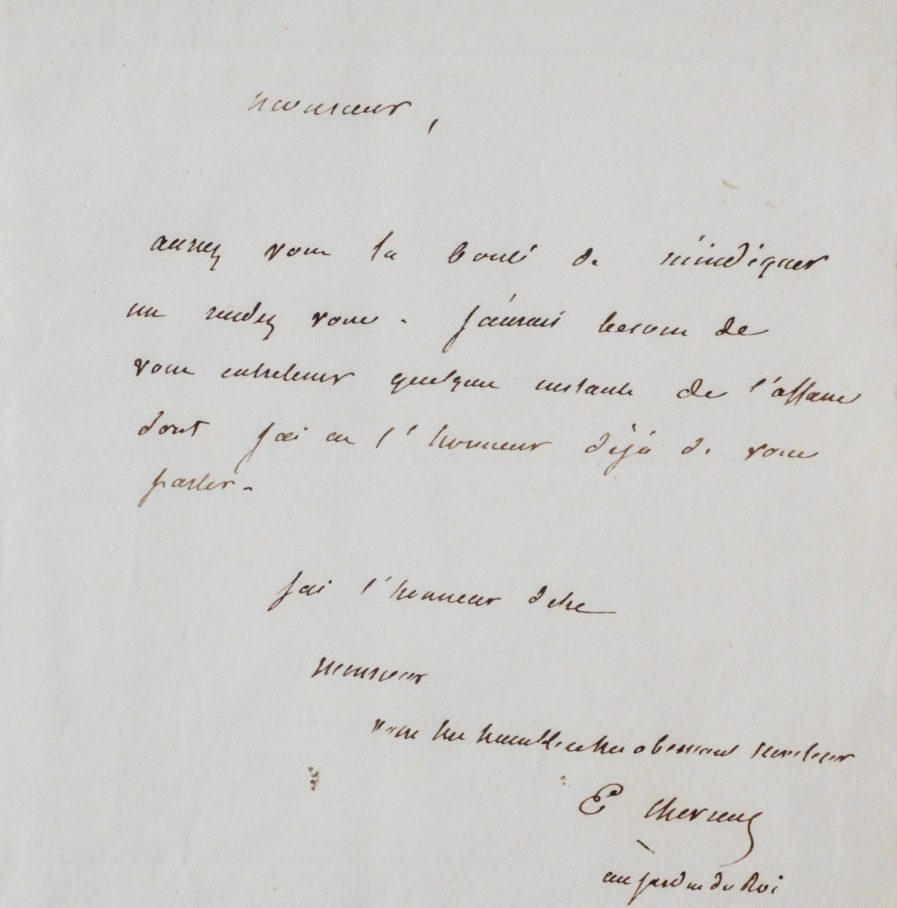 Monsieur,
aurez vous la bonté de m'indiquer
un rendez vous. J'aurais besoin de
vous entretenir quelques instants de l'affaire
dont j'ai eu l'honneur déjà de vous
parler.
J'ai l'honneur d'etre
Monsieur
votre tres humble et tres obeissant serviteur
E Chevreul
au jardin du Roi